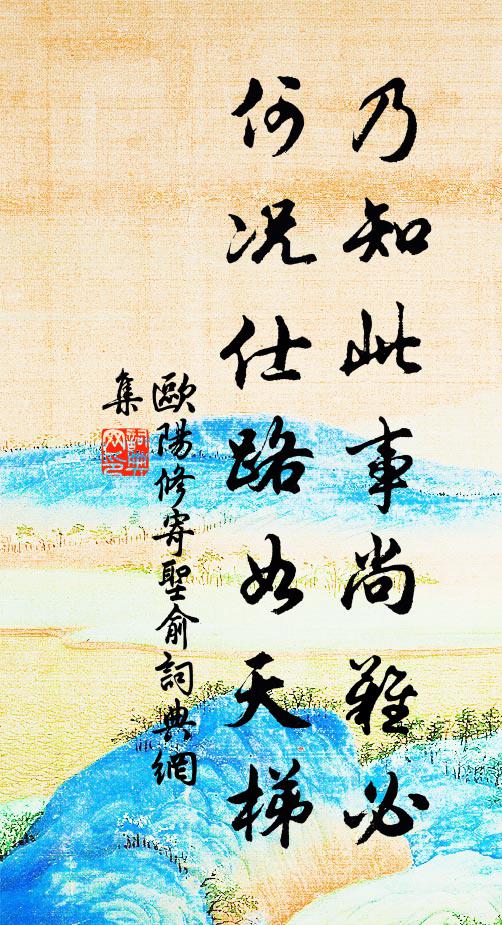 乃知此事尚難必
何况仕路如天梯
歐陽修寄聖俞詞典網
集